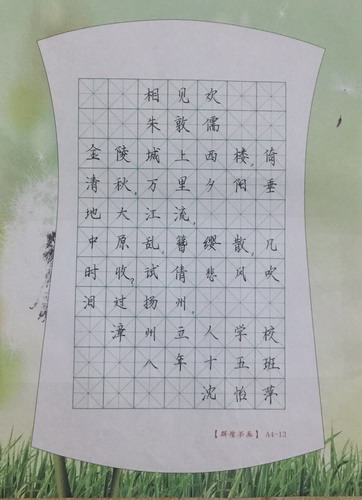 相见欢
朱敦儒
金陵城上西楼,倚
清秋,万里夕阳垂
地大江流,
中原乱,簪缨散,几
时收?试倩悲风吹
泪过扬州。
漳州立人学校
八年十五班
沈怡萍
A4-13